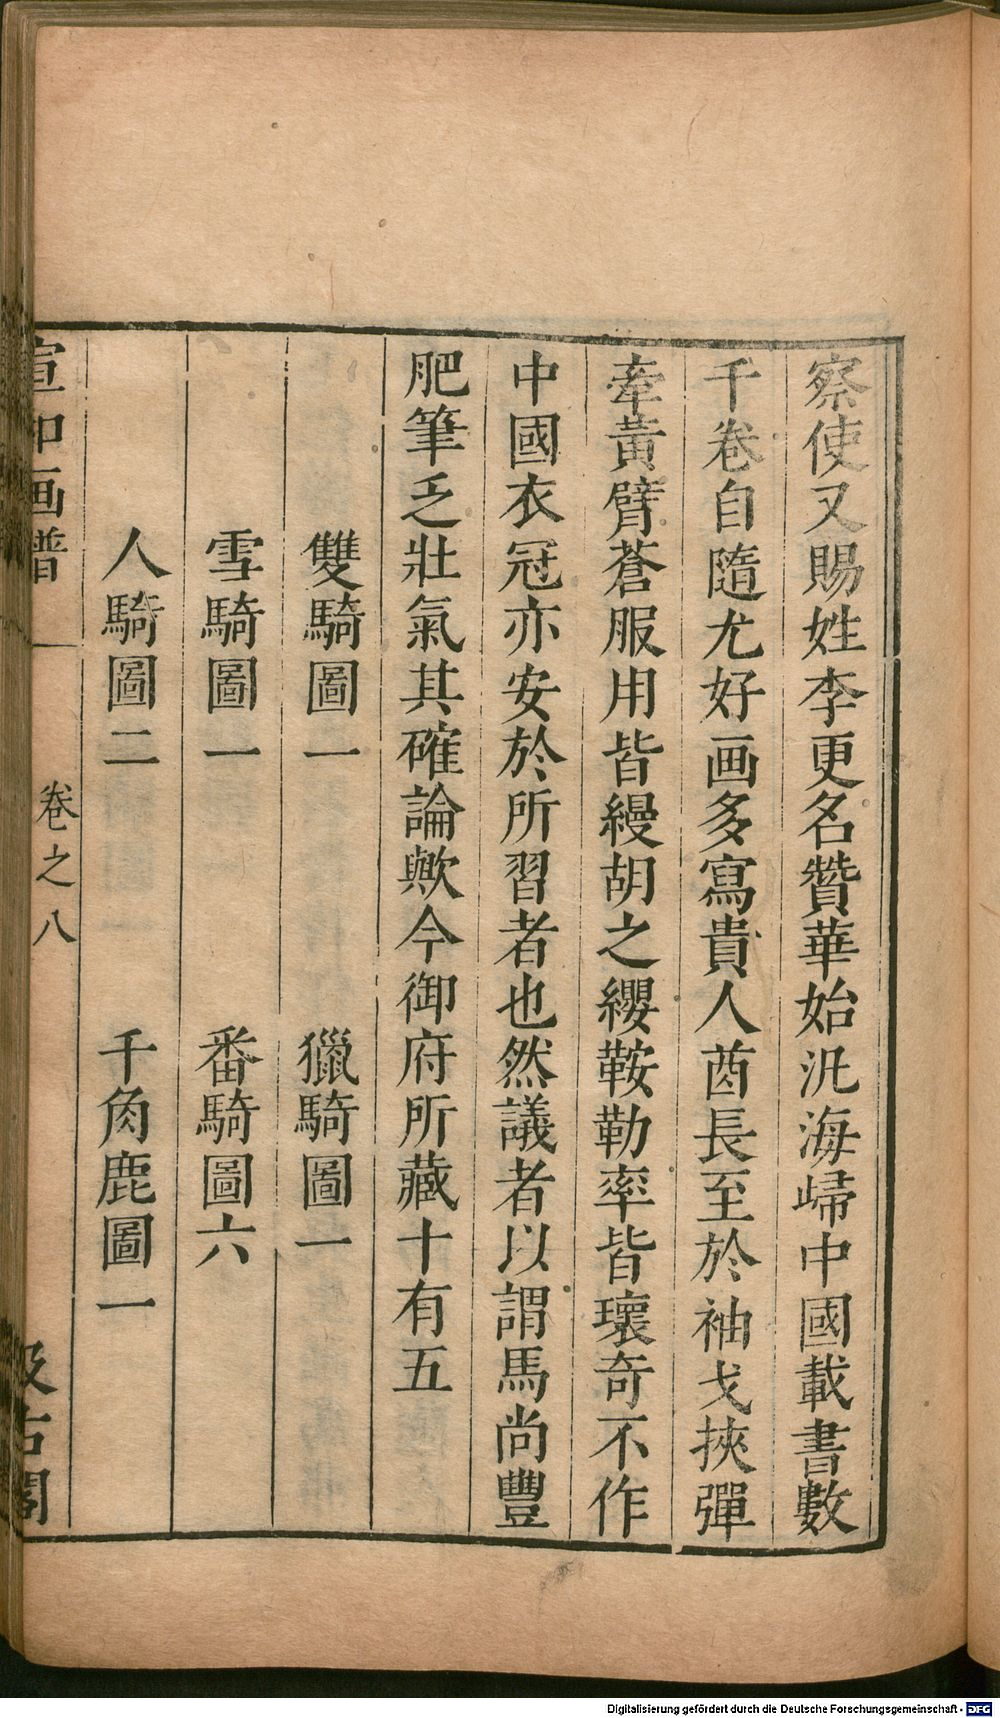 察使又賜姓李更名贊華始汎海歸中國載書數
千卷自隨尤好画多寫貴人酋長至於袖戈挾彈
牽黃臂蒼服用皆縵胡之纓鞍勒率皆瓌奇不作
中國衣冠亦安於所習者也然議者以謂馬尚豐
肥筆乏壯氣其確論歟今御府所藏十有五
雙騎圖一 獵騎圖一
雪騎圖一 番騎圖六
人騎圖二 千角鹿圖一
宣和画譜 卷之八 汲古閣
Digitalisierung gefördert durch die Deutsche Forschungsgemeinschaft - DFG